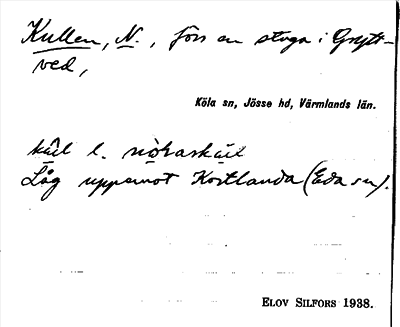 Kullen, N., förs en stuga i Grytt-
ved,
Köla sn, Jösse hd, Värmlands län.
l.
Låg uppemot Kortlanda (Eda sn).
ELOV SILFORS 1938.